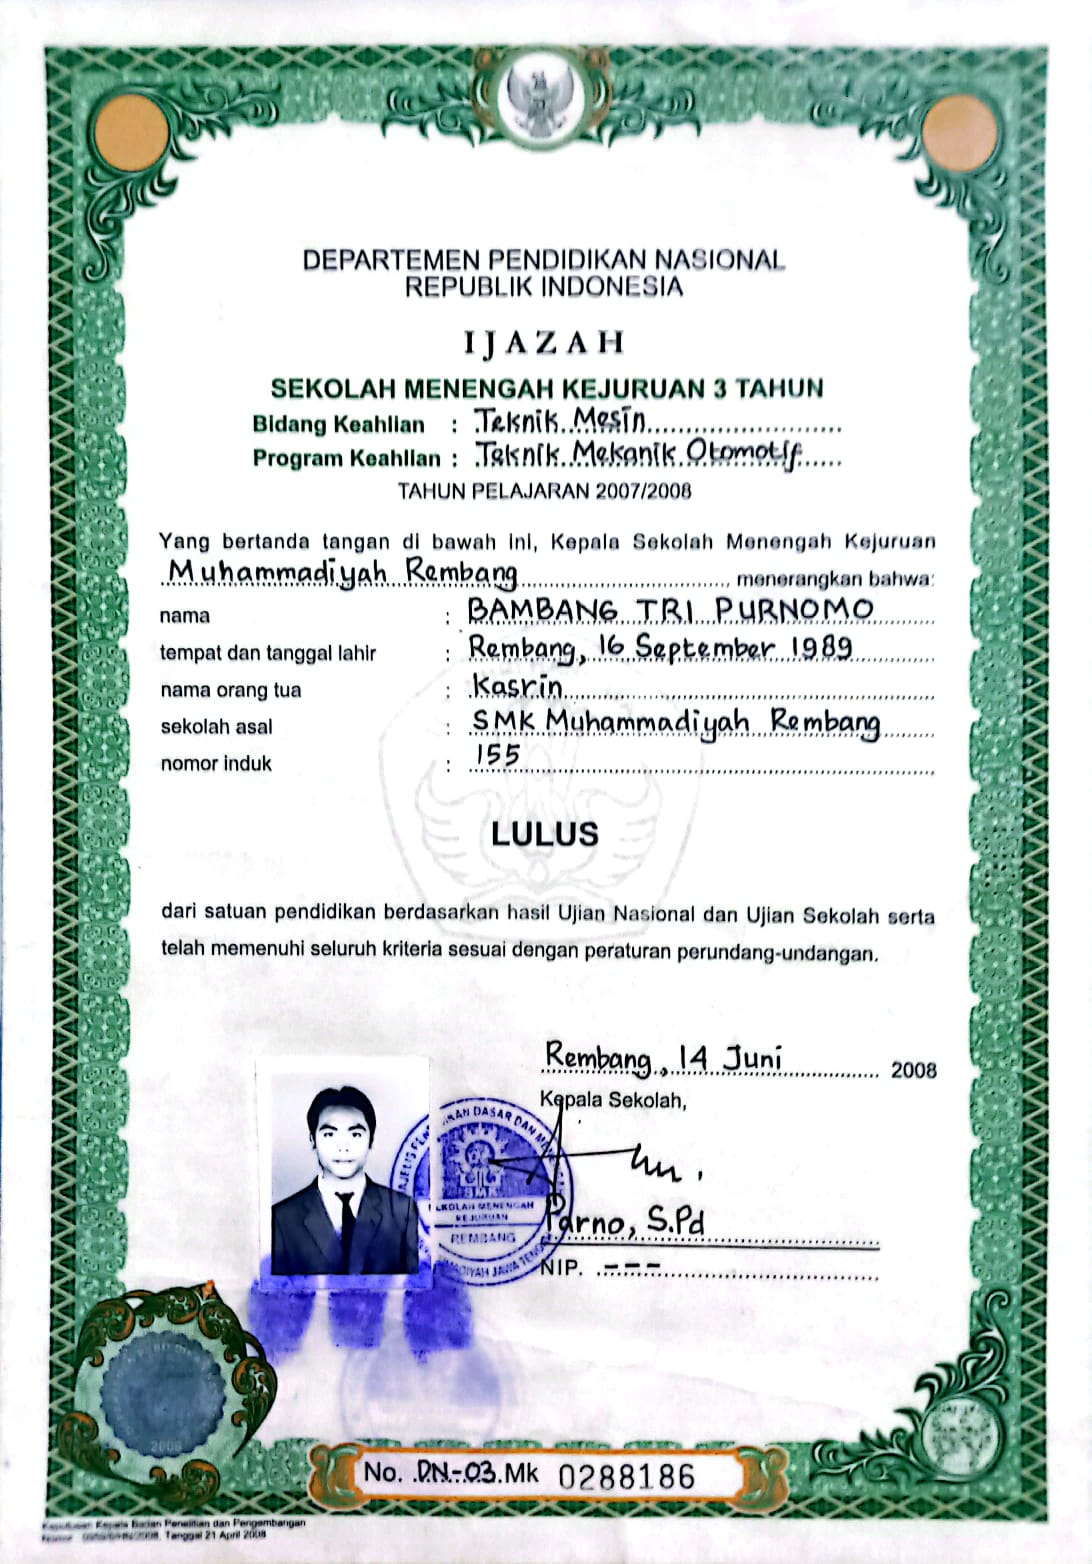 DEPARTEMEN PENDIDIKAN NASIONAL
REPUBLIK INDONESIA
IJAZAH
SEKOLAH MENENGAH KEJURUAN 3 TAHUN
Bidang Keahlian : Teknik Mesin
Program Keahlian : Teknik Mekanik Otomotif
TAHUN PELAJARAN 2007/2008
Yang bertanda tangan di bawah ini, Kepala Sekolah Menengah Kejuruan
Muhammadiyah Rembang menerangkan bahwa:
nama : BAMBANG TRI PURNOMO
tempat dan tanggal lahir : Rembang, 16 September 1989
nama orang tua : Kasrin
sekolah asal : SMK Muhammadiyah Rembang
nomor induk : 155
LULUS
dari satuan pendidikan berdasarkan hasil Ujian Nasional dan Ujian Sekolah serta
telah memenuhi seluruh kriteria sesuai dengan peraturan perundang-undangan.
Rembang, 14 Juni 2008
Kepala Sekolah,
DASAR DAN
SMK
SEKOLAH MENENGAH
KEJURUAN
REMBANG
JAWA
Parno, S.Pd
NIP. ---
2008
No. DN-03 Mk 0288186
Keputusan Kepala Badan Penelitian dan Pengembangan
Nomor Tanggal 21 April 2008